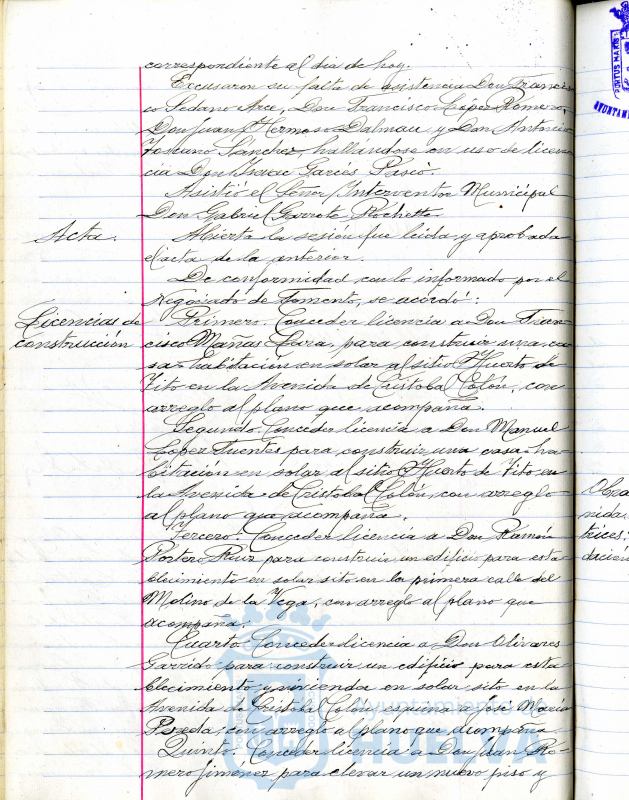 correspondiente al dia de hoy.
Excusaron su falta de asistencia Don Francis-
co Sedano Arce, Don Francisco López Romero,
Don Juan Hermoso Dalmau y Don Antonio
Toscano Sánchez, hallándose en uso de licen-
cia Don Isaac Garcés Pasió.
Asistió el Señor Interventor Municipal
Don Gabriel Garrote Rochette
Acta.
Abierta la sesión fue leida y aprobada
el acta de la anterior.
De conformidad con lo informado por el
Negociado de Fomento, se acordó:
Licencias de
construcción
Primero. Conceder licencia a Don Fran-
cisco Mañas Lara, para construir una ca-
sa-habitación en solar al sitio Huerto de
Tito en la Avenida de Cristobal Colón, con
arreglo al plano que acompaña.
Segundo. Conceder licencia a Don Manuel
López Fuentes para construir una casa-ha-
bitación en solar al sitio Huerto de Tito, en
la Avenida de Cristobal Colón, con arreglo
al plano que acompaña.
Tercero. Conceder licencia a Don Ramón
Portero Ruiz para construir un edificio para esta-
blecimiento en solar sito en la primera calle del
Molino de la Vega, con arreglo al plano que
acompaña.
Cuarto. Conceder licencia a Don Olivares
Garrido para construir un edificio para esta-
blecimiento y vivienda en solar sito en la
Avenida de Cristobal Colón esquina a José María
Pereda, con arreglo al plano que acompaña
Quinto. Conceder licencia a Don Juan Ro-
mero Jimenez para elevar un nuevo piso y
Ayuntamiento
HUELVA
PORTUS MARIS
AYUNTAM
nida
trices;
dación